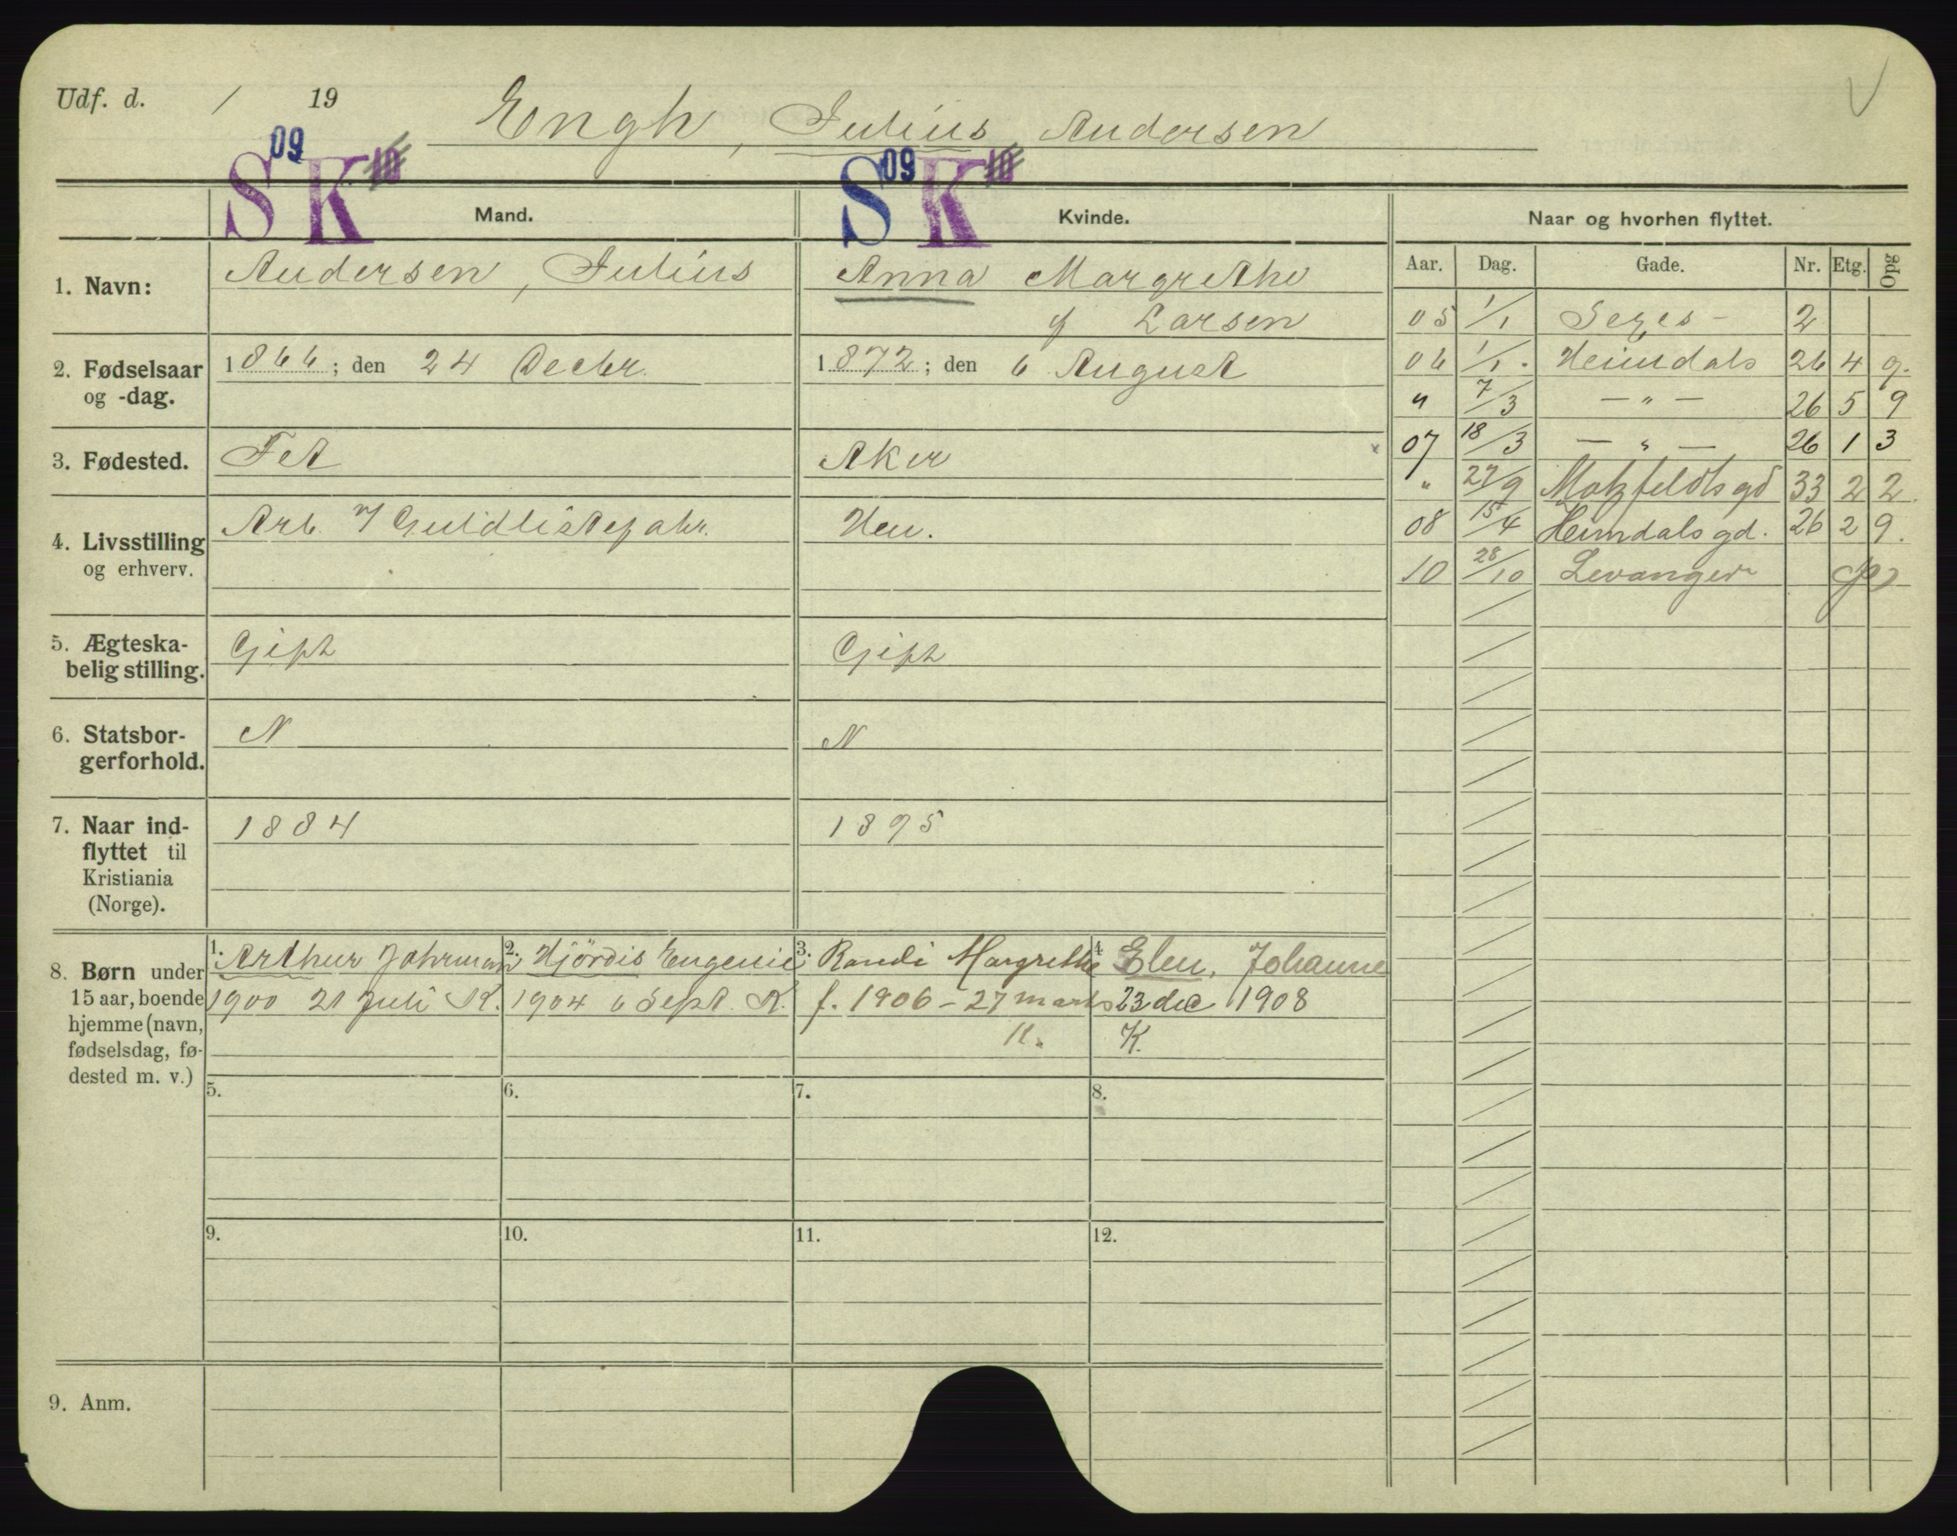 Udf. d. / 19
Engh, Julius Andersen
S 09 K 10
S 09 K 10
Mand.
Kvinde.
1. Navn:
Andersen, Julius
Anna Margrethe
f Larsen
2. Fødselsaar og -dag.
1866; den 24 Decbr.
1872; den 6 August
3. Fødested.
Fet
Aker
4. Livsstilling og erhverv.
Arb. Guldlistefabr.
Hu.
5. Ægteska-
belig stilling.
Gift
Gift
6. Statsbor-
gerforhold.
N
N
7. Naar ind-
flyttet til
Kristiania
(Norge).
1884
1895
8. Børn under
15 aar, boende
hjemme (navn,
fødselsdag, fø-
dested m. v.)
1. Arthur Johrman
1900 21 Juli K.
2. Hjördis Eugenie
1904 6 Sept. K.
3. Randi Margrethe
f. 1906 - 27 marts
K.
4. Elen, Johanne
23 dec 1908
K.
5.
6.
7.
8.
9.
10.
11.
12.
9. Anm.
Naar og hvorhen flyttet.
Aar. Dag. Gade. Nr. Etg. Opg
05 1/1 Seges - 2
06 1/1 Heimdals 26 4 9.
" 7/3 — " — 26 5 9
07 18/3 — " — 26 1 3
" 27/9 Motzfeldts gd 33 2 2.
08 15/4 Heimdals gd. 26 2 9.
10 28/10 Levanger